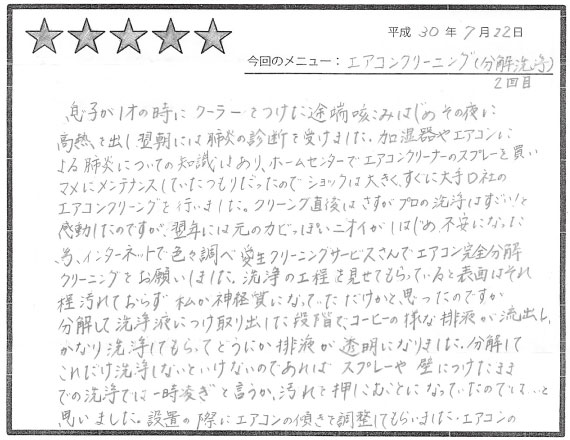 平成 30 年 7月 22日
今回のメニュー：エアコンクリーニング(分解洗浄)
2回目
息子が1才の時にクーラーをつけた途端咳こみはじめその夜に
高熱を出し翌朝には肺炎の診断を受けました。加湿器やエアコンに
よる肺炎についての知識はあり、ホームセンターでエアコンクリーナーのスプレーを買い
マメにメンテナンスしていたつもりだったのでショックは大きく、すぐに大手D社の
エアコンクリーングを行いました。クリーニング直後はさすがプロの洗浄はすごい!と
感動したのですが、翌年には元のカビっぽいニオイがしはじめ、不安になった
為、インターネットで色々調べ愛生クリーニングサービスさんでエアコン完全分解
クリーニングをお願いしました。洗浄の工程を見せてもらっていると表面はそれ
程汚れておらず私が神経質になっていただけかと思ったのですが
分解して洗浄液につけ取り出した段階で、コーヒーの様な排液が流出し、
かなり洗浄してもらってどうにか排液が透明になりました。分解して
これだけ洗浄しないといけないのであればスプレーや壁につけたまま
での洗浄では一時凌ぎと言うか、汚れを押しこむことになっていたのでは…と
思いました。設置の際にエアコンの傾きを調整してもらいました。エアコンの